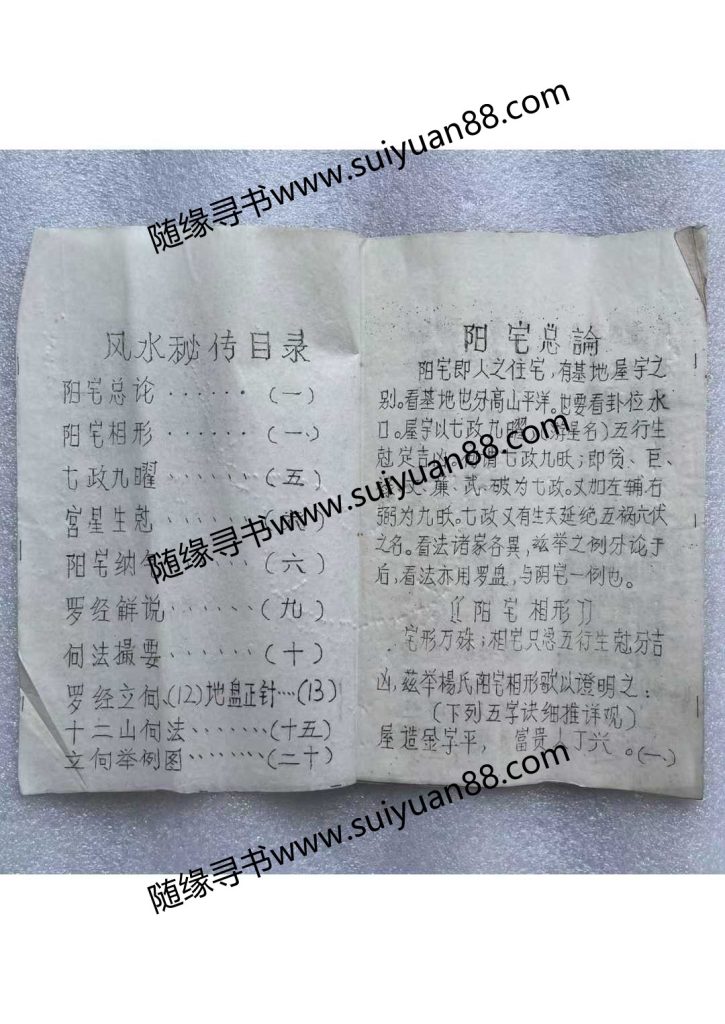 随缘寻书www.suiyuan88.com
风水秘传目录
阳宅总论······(一)
阳宅相形······(一)
七政九曜······(五)
宫星生尅
阳宅纳 ······(六)
罗经解说······(九)
向法撮要······(十)
罗经立向、(12)地盘正针···(13)
十二山向法·······(十五)
立向举例图········(二十)
阳宅总論
阳宅即人之住宅,有基地屋宇之
别。看基地也分高山平洋。也要看卦位水
口。屋宇以七政九曜 星名)五行生
尅定吉凶 七政九旺;即贫、巨、
文、廉、武、破为七政。又加左辅右
弼为九旺。七政又有生天延绝五祸六伏
之名。看法诸家各異,兹举之例分论于
后,看法亦用罗盘,与阴宅一例也。
《阳宅相形》
宅形万殊;相宅只忌五行生尅分吉
凶,兹举楊氏阳宅相形歌以證明之:
(下列五字诀细推详观)
屋造显字平, 富贵人丁兴。(一)
随缘寻书www.suiyuan88.com
随缘寻书www.suiyuan88.com